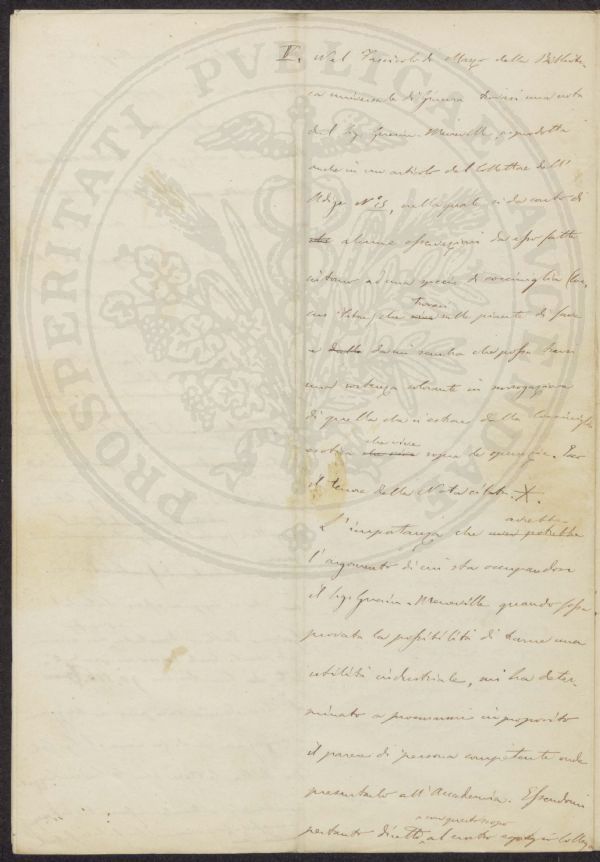 V. Nel Fascicolo di Marzo della Bibliote-
ca universale di Ginevra trovasi una nota
del Sig. Guerin-Meneville riprodotta
anche in un articolo del Collettore dell'
Adige N.º 15, nella quale si da conto di
alcune osservazioni da esso fatte
intorno ad una specie di cocciniglia (Coc-
cus ) che trovasi sulle piante di fava
e dalla da cui sembra che possa trarsi
una sostanza colorante in surrogazione
di quella che si estrae dalla Cocciniglia
esotica che vive che vive sopra le opunzie. Ecco
il tenore della Nota citata. X.
L'importanza che avrebbe potrebbe
l'argomento di cui sta occupandosi
il Sig. Guerin-Meneville quando fosse
provata la possibilità di trarne una
utilità industriale, mi ha deter-
minato a procurarmi in proposito
il parere di persona competente onde
presentarlo all'Accademia. Essendomi
pertanto diretto a quest'uopo al nostro Colleg
PROSPERITATI PVBLICAE AVGENDAE